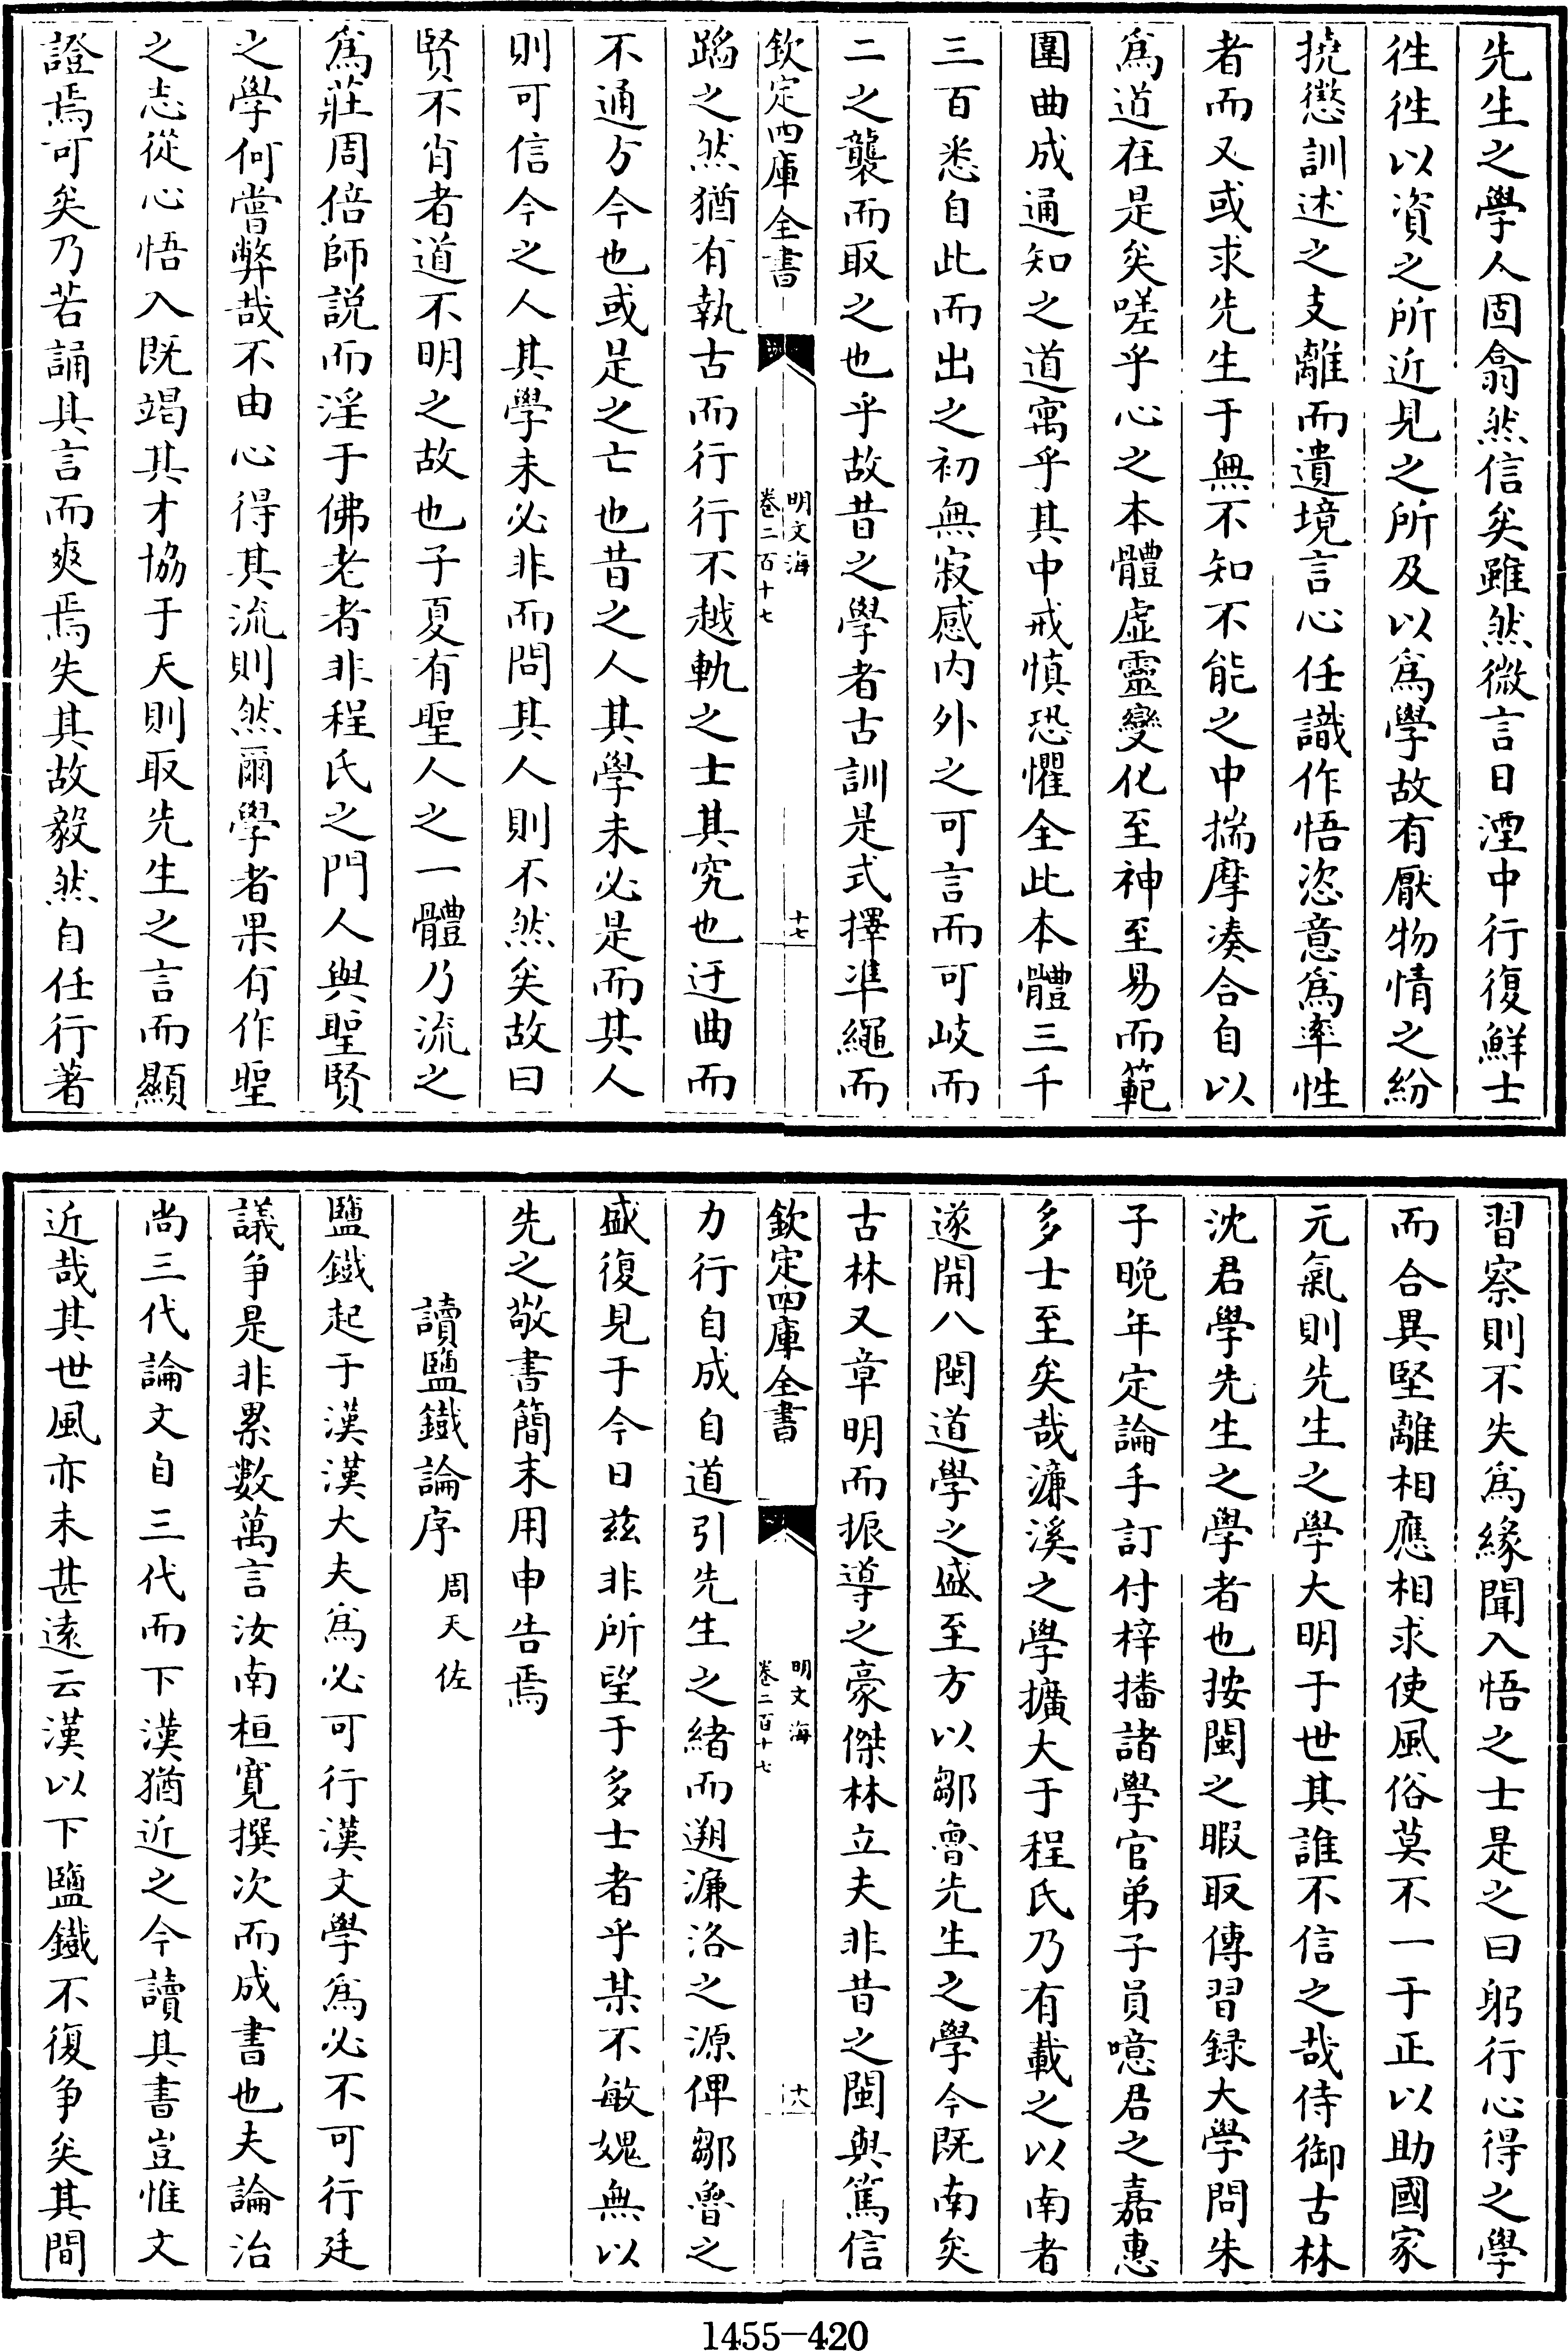 先生之學人固翕然信矣雖然微言日湮中行復鮮士
徃徃以資之所近見之所及以為學故有厭物情之紛
撓懲訓述之支離而遺境言心任識作悟恣意為率性
者而又或求先生于無不知不能之中揣摩凑合自以
為道在是矣嗟乎心之本體虚靈變化至神至易而範
圍曲成通知之道寓乎其中戒慎恐懼全此本體三千
三百悉自此而出之初無寂感内外之可言而可岐而
二之襲而取之也乎故昔之學者古訓是式擇凖繩而
欽定四庫全書
明文海
卷二百十七
十七
蹈之然猶有執古而行行不越軌之士其究也迂曲而
不通方今也或是之亡也昔之人其學未必是而其人
則可信今之人其學未必非而問其人則不然矣故曰
賢不肖者道不明之故也子夏有聖人之一體乃流之
為莊周倍師説而淫于佛老者非程氏之門人與聖賢
之學何嘗弊哉不由心得其流則然爾學者果有作聖
之志從心悟入既竭其才協于天則取先生之言而顯
證焉可矣乃若誦其言而爽焉失其故毅然自任行著
習察則不失為緣聞入悟之士是之曰躬行心得之學
而合異堅離相應相求使風俗莫不一于正以助國家
元氣則先生之學大明于世其誰不信之哉侍御古林
沈君學先生之學者也按閩之暇取傳習録大學問朱
子晚年定論手訂付梓播諸學官弟子員噫君之嘉惠
多士至矣哉濂溪之學擴大于程氏乃有載之以南者
遂開八閩道學之盛至方以鄒魯先生之學今既南矣
古林又章明而振導之豪傑林立夫非昔之閩與篤信
欽定四庫全書
明文海
卷二百十七
十八
力行自成自道引先生之緒而遡濂洛之源俾鄒魯之
盛復見于今日兹非所望于多士者乎某不敏媿無以
先之敬書簡末用申告焉
讀鹽鐵論序 周天佐
鹽鐵起于漢漢大夫為必可行漢文學為必不可行廷
議争是非累數萬言汝南桓寛撰次而成書也夫論治
尚三代論文自三代而下漢猶近之今讀其書豈惟文
近哉其世風亦未甚遠云漢以下鹽鐵不復争矣其間
1455-420